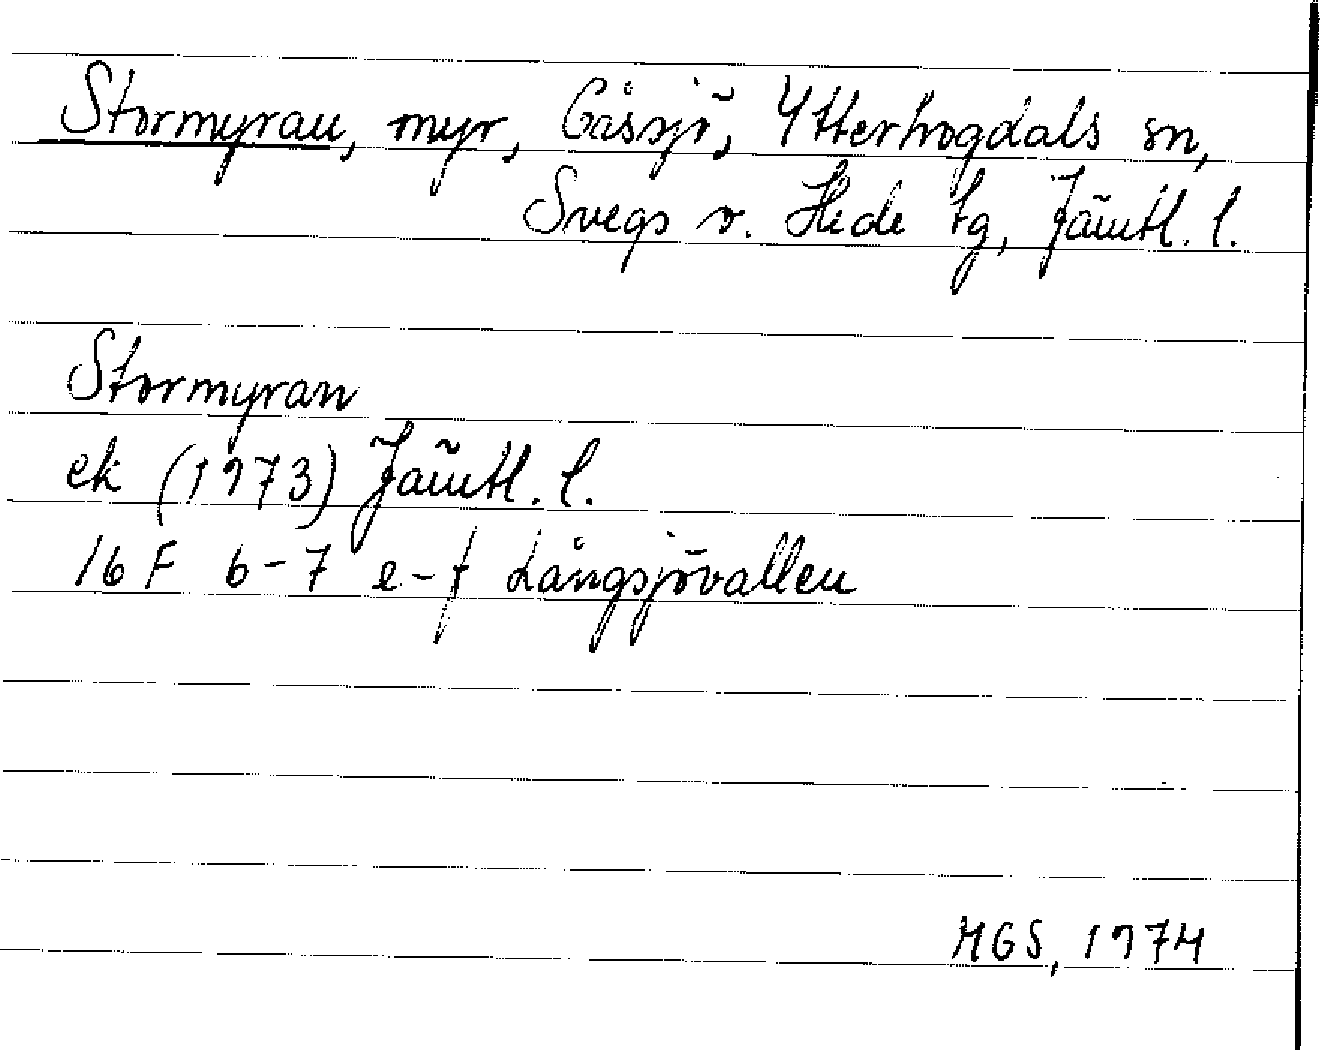 Stormyran, myr, Gåssjö, Ytterhogdals sn,
Svegs o. Hede tg, Jämtl. l.
Stormyran
ek (1973) Jämtl. l.
16 F 6-7 e-f Långsjövallen
MGS, 1974